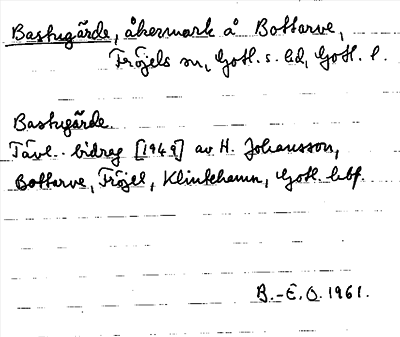 Bastugärde, åkermark å Bottarve,
Fröjels sn, Gotl. s. hd, Gotl. l.
Bastugärde.
Tävl. bidrag [1945] av H. Johansson,
Bottarve, Fröjel, Klintehamn, Gotl.
B.-E. O. 1961.